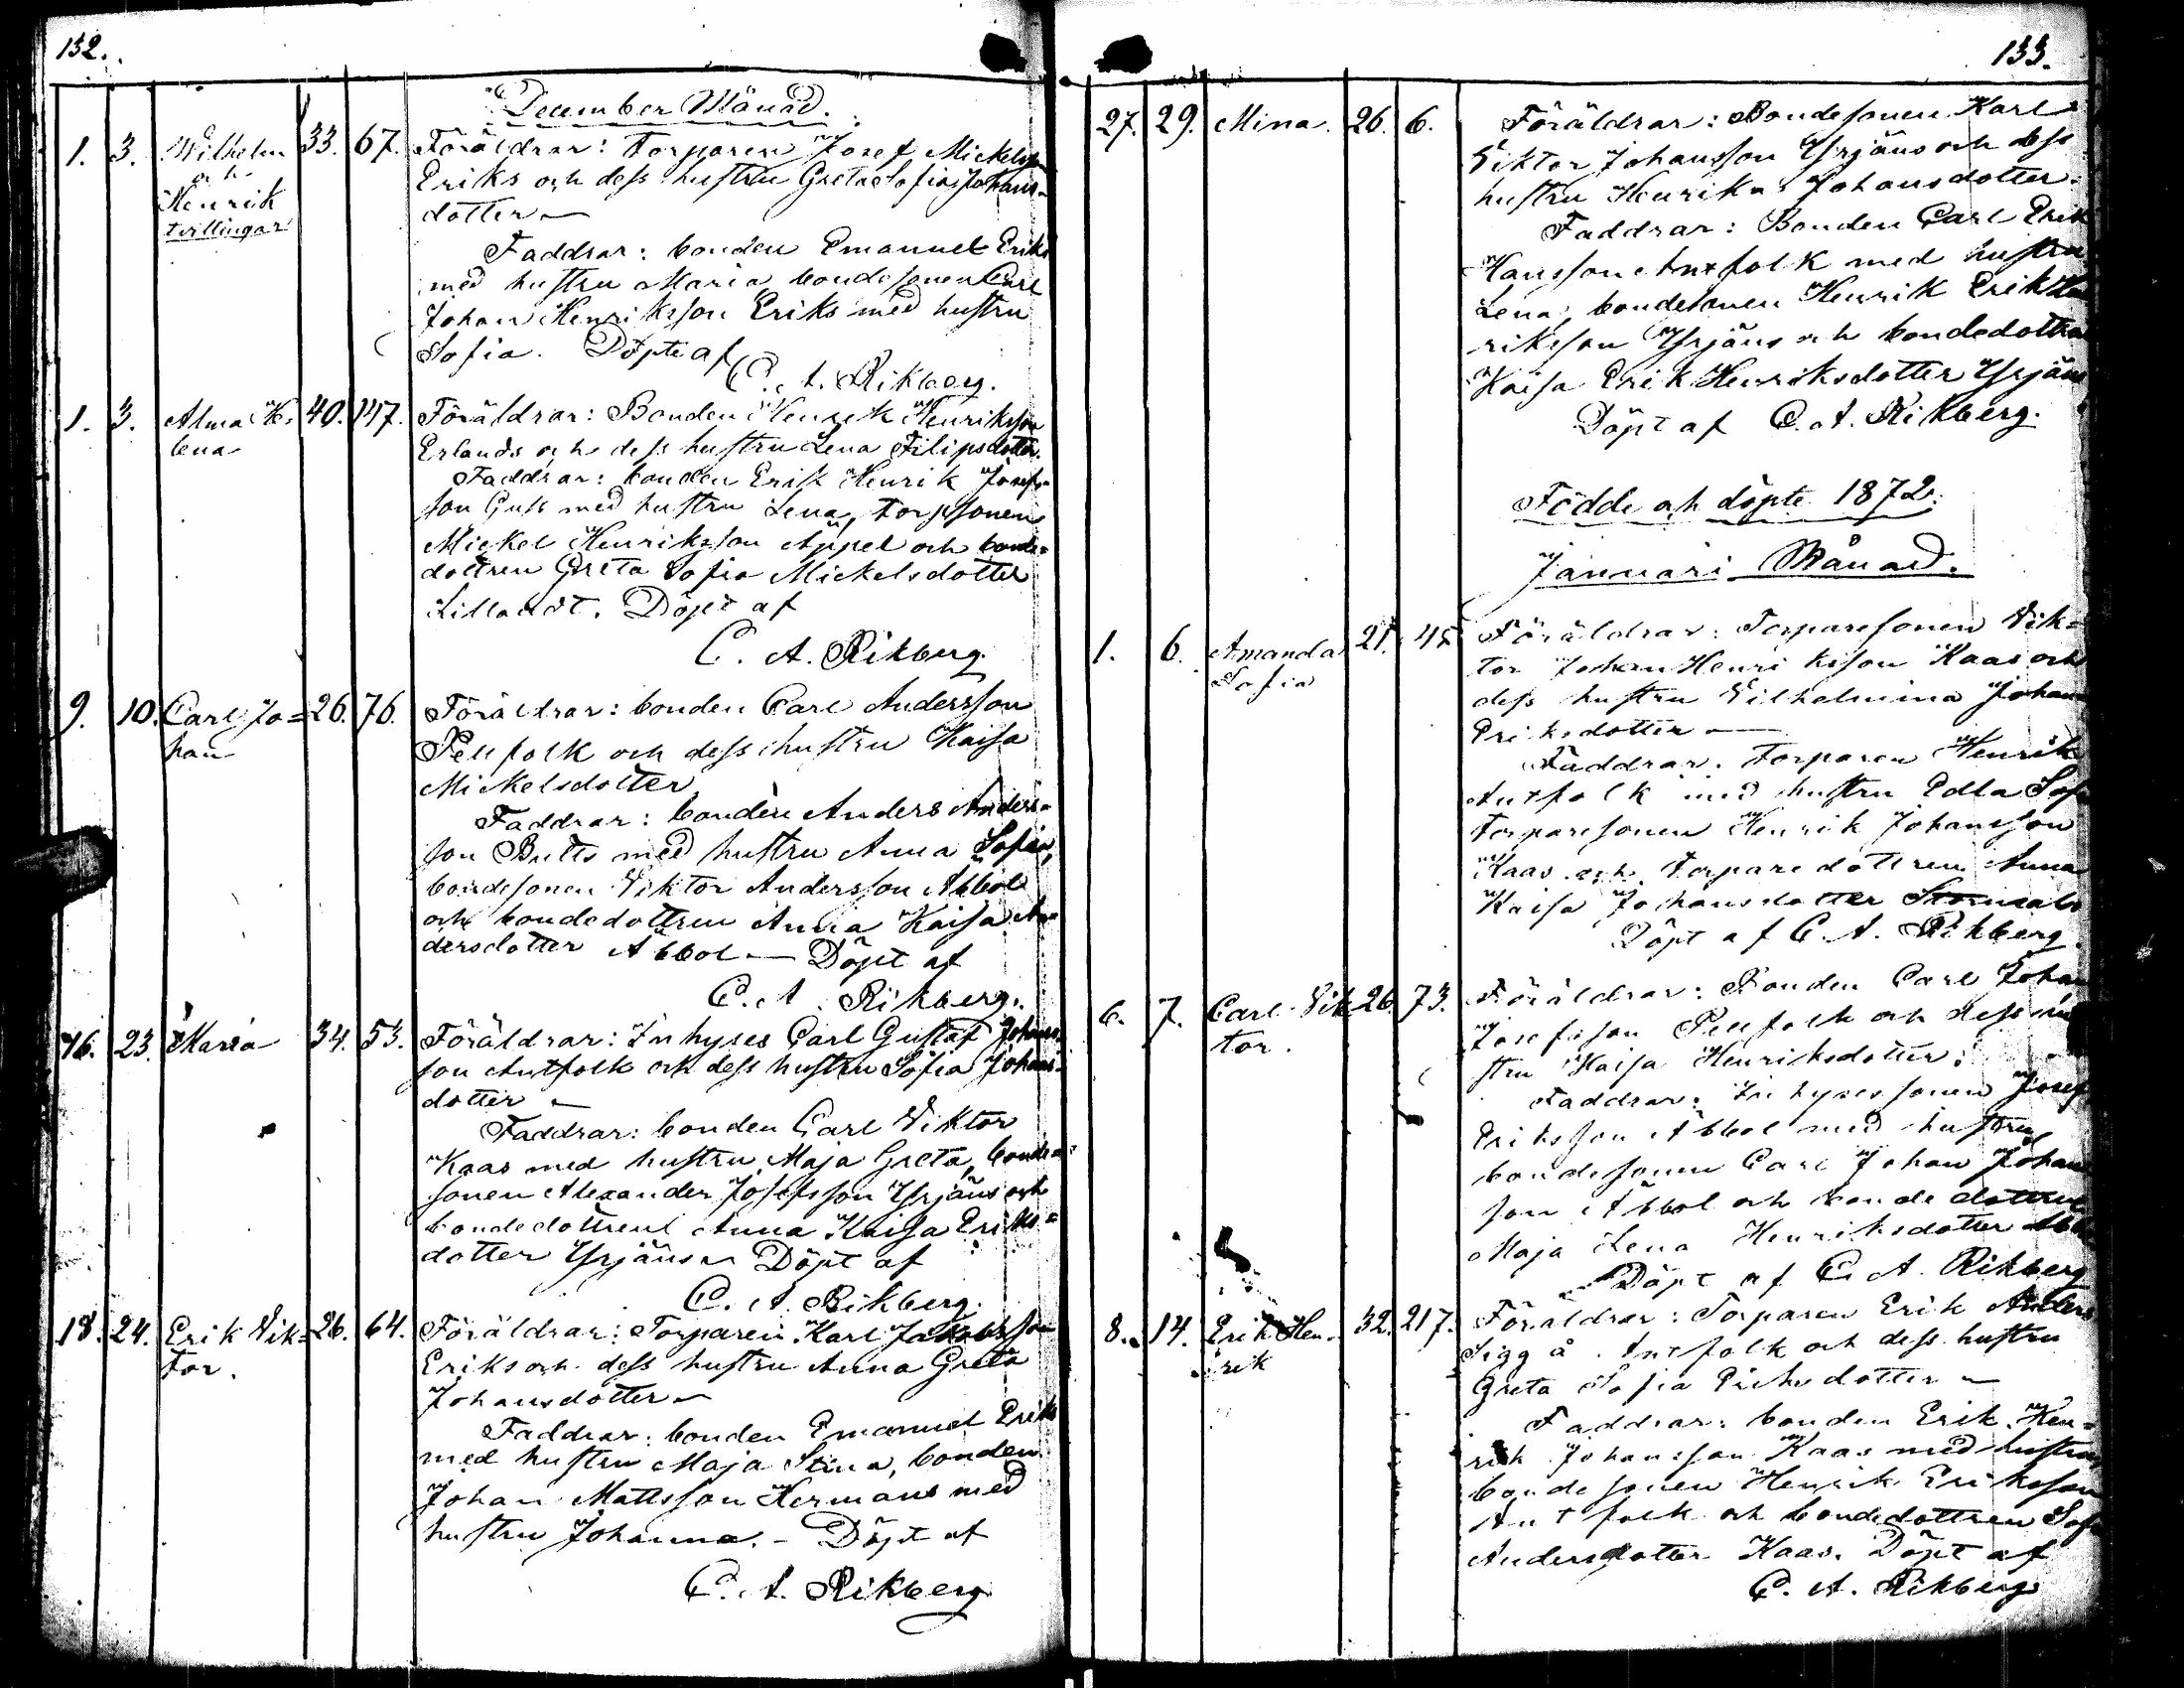 132.
December Månad.
1. 3. Wilhelm och Henrik tvillingar 33. 67. Föräldrar: Torparen Josef Mickelsson
Eriks och dess hustru Greta Sofia Johans-
dotter —
Faddrar: bonden Emanuel Eriks
med hustru Maria, bondesonen Carl
Johan Henriksson Eriks med hustru
Sofia. Döpte af
C. A. Rikberg.
1. 3. Alma He- lena 40. 147. Föräldrar: Bonden Henrik Henriksson
Erlands och dess hustru Lena Filipsdotter.
Faddrar: bonden Erik Henrik Josefs-
son Guss med hustru Lena, torpsonen
Mickel Henriksson Äppel och bonde=
dottren Greta Sofia Mickelsdotter
Lillandt. Döpt af
C. A. Rikberg.
9. 10. Carl Jo= han 26. 76. Föräldrar: bonden Carl Andersson
Pellfolk och dess hustru Kaisa
Mickelsdotter
Faddrar: bonden Anders Anders=
son Butts med hustru Anna Sofia,
bondesonen Viktor Andersson Abbol
och bondedottren Anna Kaisa An=
dersdotter Abbol — Döpt af
C. A. Rikberg.
16. 23. Maria 34. 53. Föräldrar: Inhyses Carl Gustaf Johans-
son Antfolk och dess hustru Sofia Johans-
dotter —
Faddrar: bonden Carl Viktor
Kaas med hustru Maja Greta, bonde=
sonen Alexander Josefsson Yrjäns och
bondedottren Anna Kaisa Eriks=
dotter Yrjäns — Döpt af
C. A. Rikberg.
18. 24. Erik Vik= tor. 26. 64. Föräldrar: Torparen Karl Jakobsson
Eriks och dess hustru Anna Greta
Johansdotter —
Faddrar: bonden Emanuel Eriks
med hustru Maja Stina, bonden
Johan Mattsson Hermans med
hustru Johanna. — Döpt af
C. A. Rikberg
133.
27. 29. Mina. 26. 6. Föräldrar: Bondesonen Karl
Viktor Johansson Yrjäns och dess
hustru Henrika Johansdotter.
Faddrar: Bonden Carl Erik
Hansson Antfolk med hustru
Lena, bondesonen Henrik Erik Hen
riksson Yrjäns och bondedottren
Kaisa Erik Henriksdotter Yrjäns
Döpt af C. A. Rikberg.
Födde och döpte 1872.
Januari Månad.
1. 6. Amanda Sofia 21. 45 Föräldrar: Torparesonen Vik=
tor Johan Henriksson Kaas och
dess hustru Vilhelmina Johan
Eriksdotter —
Faddrar: Torparen Henrik
Antfolk med hustru Edla Sofi
torparesonen Henrik Johansson
Kaas och torparedottren Anna
Kaisa Johansdotter
Döpt af C. A. Rikberg.
6. 7. Carl Vik tor. 26. 73. Föräldrar: Bonden Carl Johan
Josefsson Pellfolk och dess hu
stru Kaisa Henriksdotter.
Faddrar: Inhysessonen Josef
Eriksson Abbol med hustru
bondesonen Carl Johan Johan
son Abbol och bondedottren
Maja Lena Henriksdotter Abb
Döpt af C. A. Rikberg
8. 14. Erik Hen- rik 32. 217. Föräldrar: Torparen Erik Anders
Sigg å Antfolk och dess hustru
Greta Sofia Eriksdotter —
Faddrar: bonden Erik Hen=
rik Johansson Kaas med hustru,
bondesonen Henrik Eriksson
Antfolk och bondedottren Sofi
Andersdotter Kaas. Döpt af
C. A. Rikberg